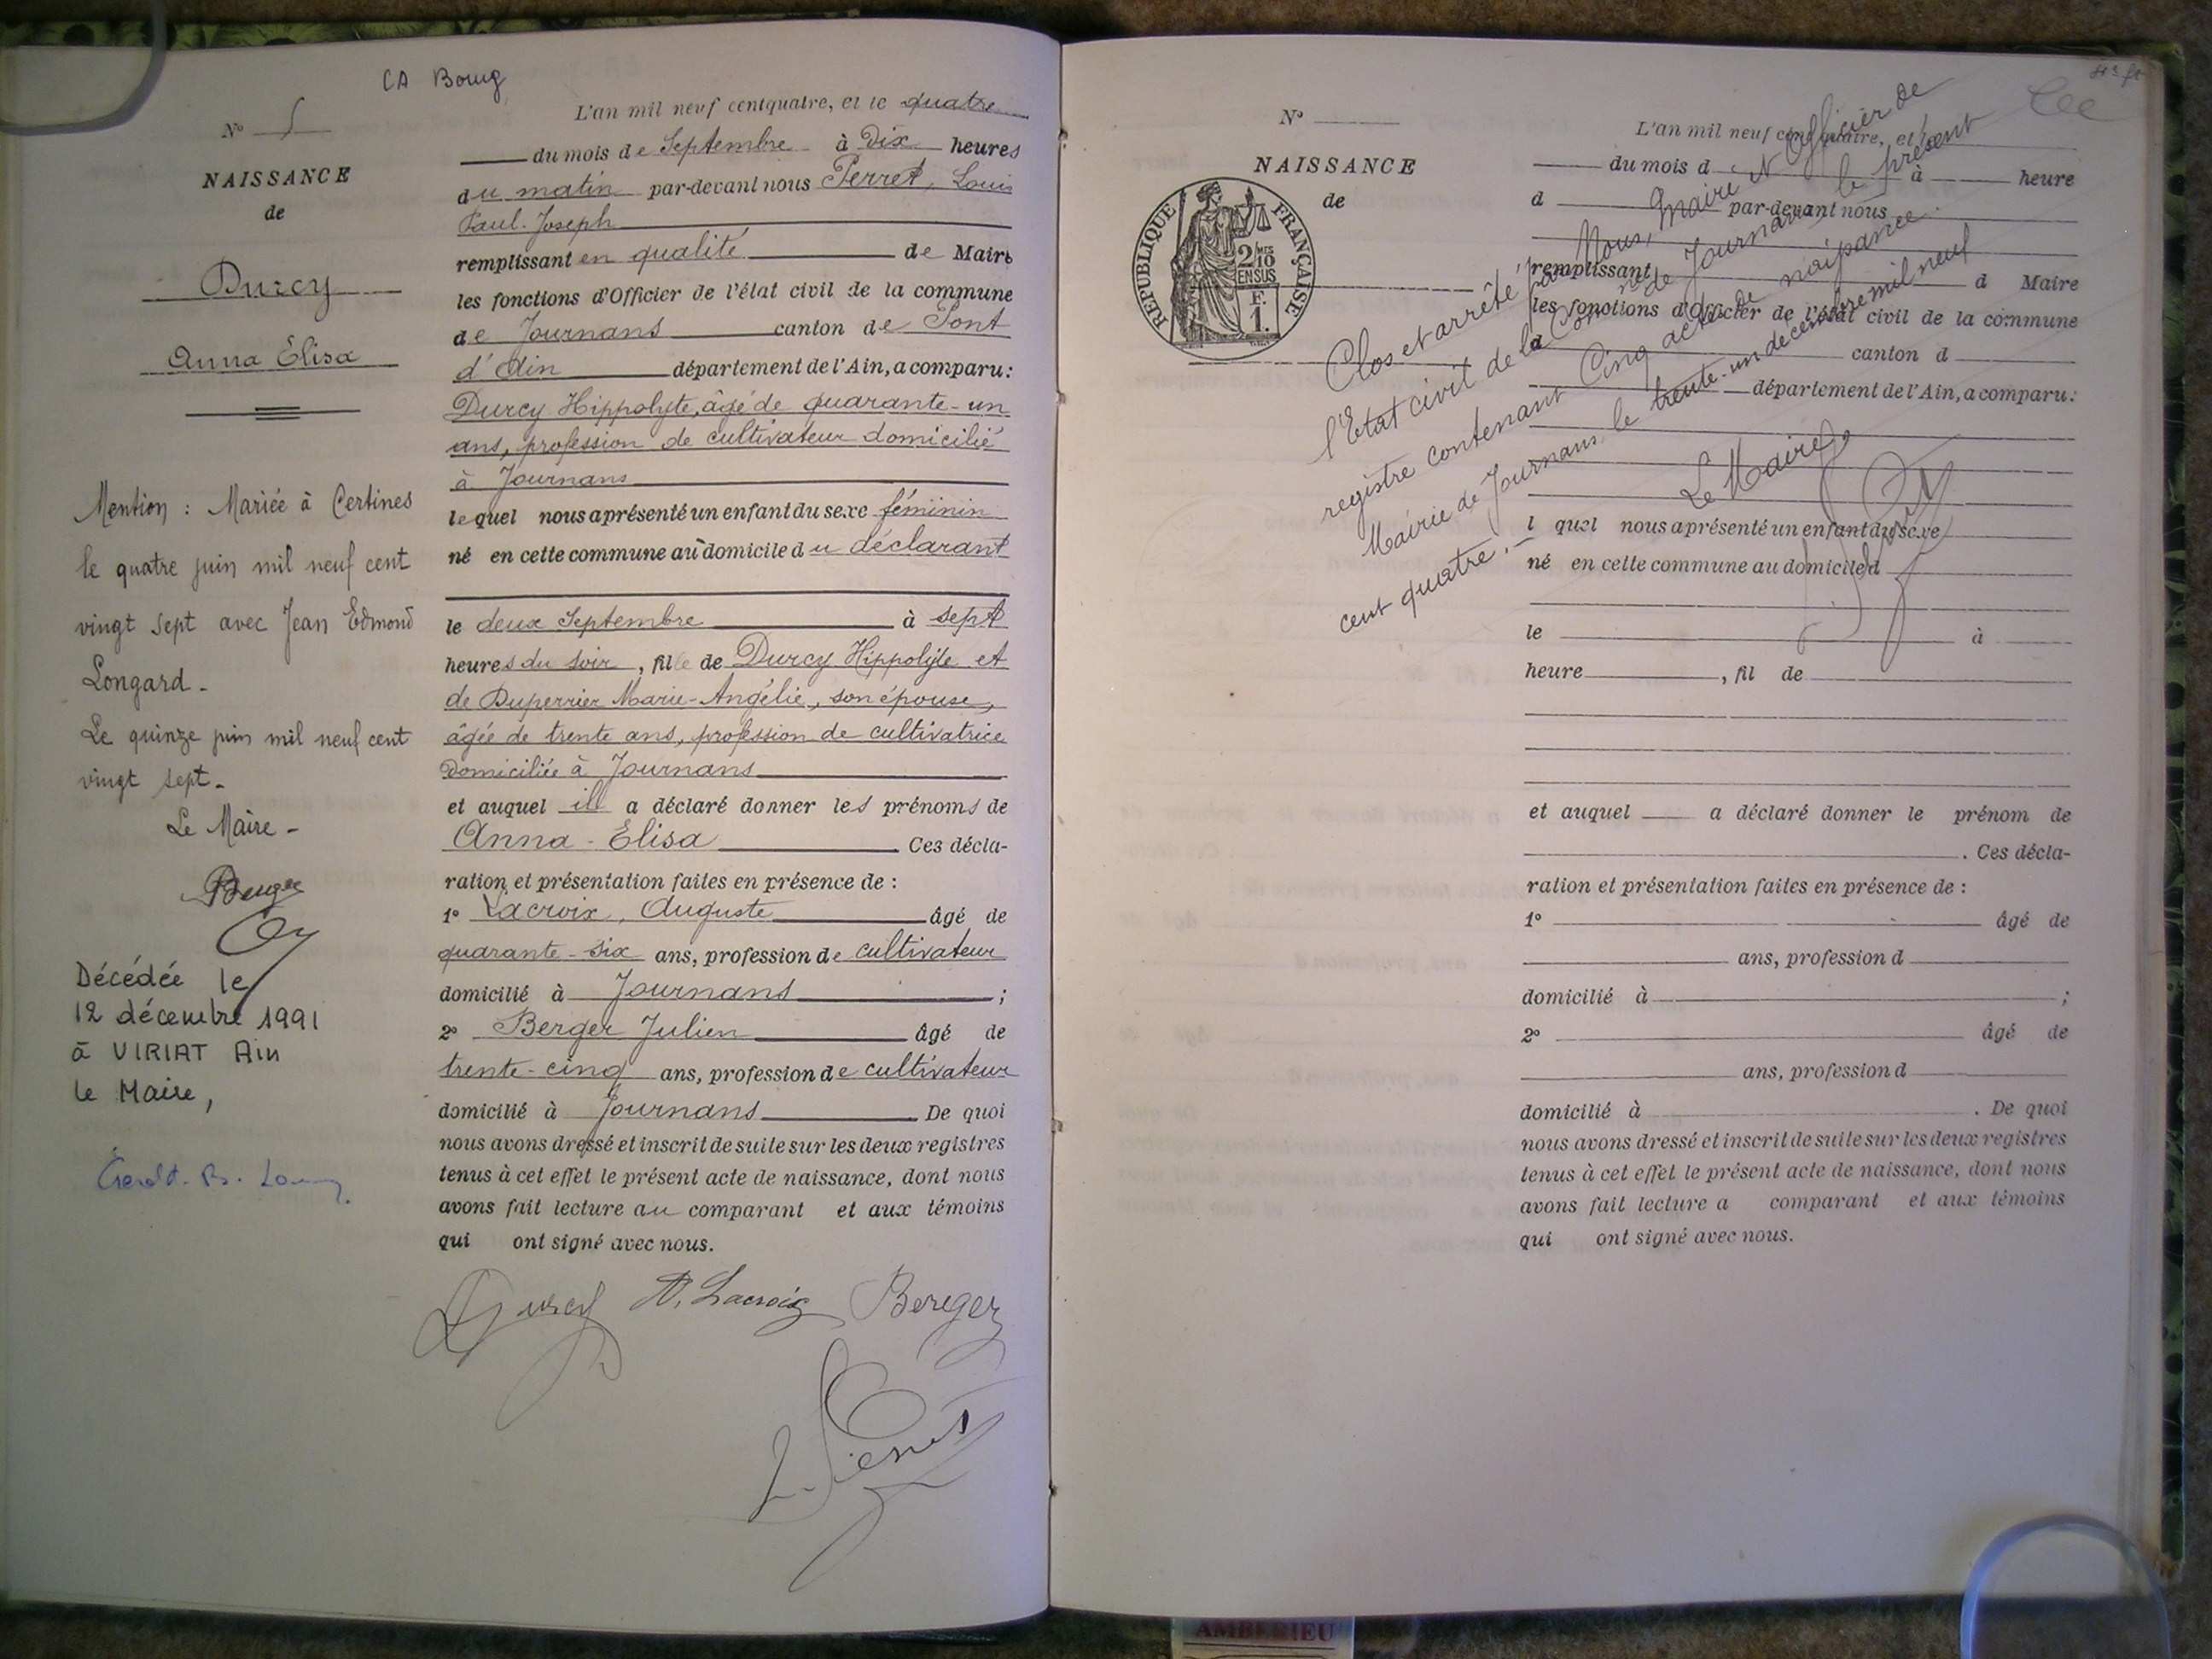 CA Bourg
N° 5
NAISSANCE
de
Durcy
Anna Élisa
Mention : Mariée à Certines
le quatre juin mil neuf cent
vingt sept avec Jean Edmond
Longard -
Le quinze juin mil neuf cent
vingt sept -
Le Maire -
Berger
Décédée le
12 décembre 1991
à VIRIAT Ain
le Maire,
L'an mil neuf cent quatre, et le quatre
du mois de Septembre à Dix heures
du matin par-devant nous Perret, Louis
Paul-Joseph
remplissant en qualité de Maire
les fonctions d'Officier de l'état civil de la commune
de Journans canton de Pont
d'Ain département de l'Ain, a comparu :
Durcy Hippolyte, âgé de quarante-un
ans, profession de cultivateur domicilié
à Journans
lequel nous a présenté un enfant du sexe féminin
né en cette commune au domicile du déclarant
le deux Septembre à sept
heures du soir, fille de Durcy Hippolyte et
de Duperrier Marie-Angélie, son épouse,
âgée de trente ans, profession de cultivatrice
domiciliée à Journans
et auquel il a déclaré donner les prénoms de
Anna-Élisa Ces décla-
ration et présentation faites en présence de :
1° Lacroix, Auguste âgé de
quarante-six ans, profession de cultivateur
domicilié à Journans ;
2° Berger Julien âgé de
trente-cinq ans, profession de cultivateur
domicilié à Journans De quoi
nous avons dressé et inscrit de suite sur les deux registres
tenus à cet effet le présent acte de naissance, dont nous
avons fait lecture au comparant et aux témoins
qui ont signé avec nous.
Durcy A. Lacroix Berger
L. Perret
N°
NAISSANCE
de
RÉPUBLIQUE FRANÇAISE
2/10 MES
EN SUS
F.
1.
L'an mil neuf cent quatre, et le
du mois d à heure
d par-devant nous
remplissant d Maire
les fonctions d'Officier de l'état civil de la commune
d canton d
département de l'Ain, a comparu :
Clos et arrêté par Nous, Maire et Officier de
l'Etat civil de la Commune de Journans le présent
registre contenant Cinq actes de naissance.
Mairie de Journans, le trente-un décembre mil neuf
cent quatre. -
Le Maire
l quel nous a présenté un enfant du sexe
né en cette commune au domicile d
le à
heure , fil de
et auquel a déclaré donner le prénom de
. Ces décla-
ration et présentation faites en présence de :
1° âgé de
ans, profession d
domicilié à ;
2° âgé de
ans, profession d
domicilié à . De quoi
nous avons dressé et inscrit de suite sur les deux registres
tenus à cet effet le présent acte de naissance, dont nous
avons fait lecture a comparant et aux témoins
qui ont signé avec nous.
AMBERIEU